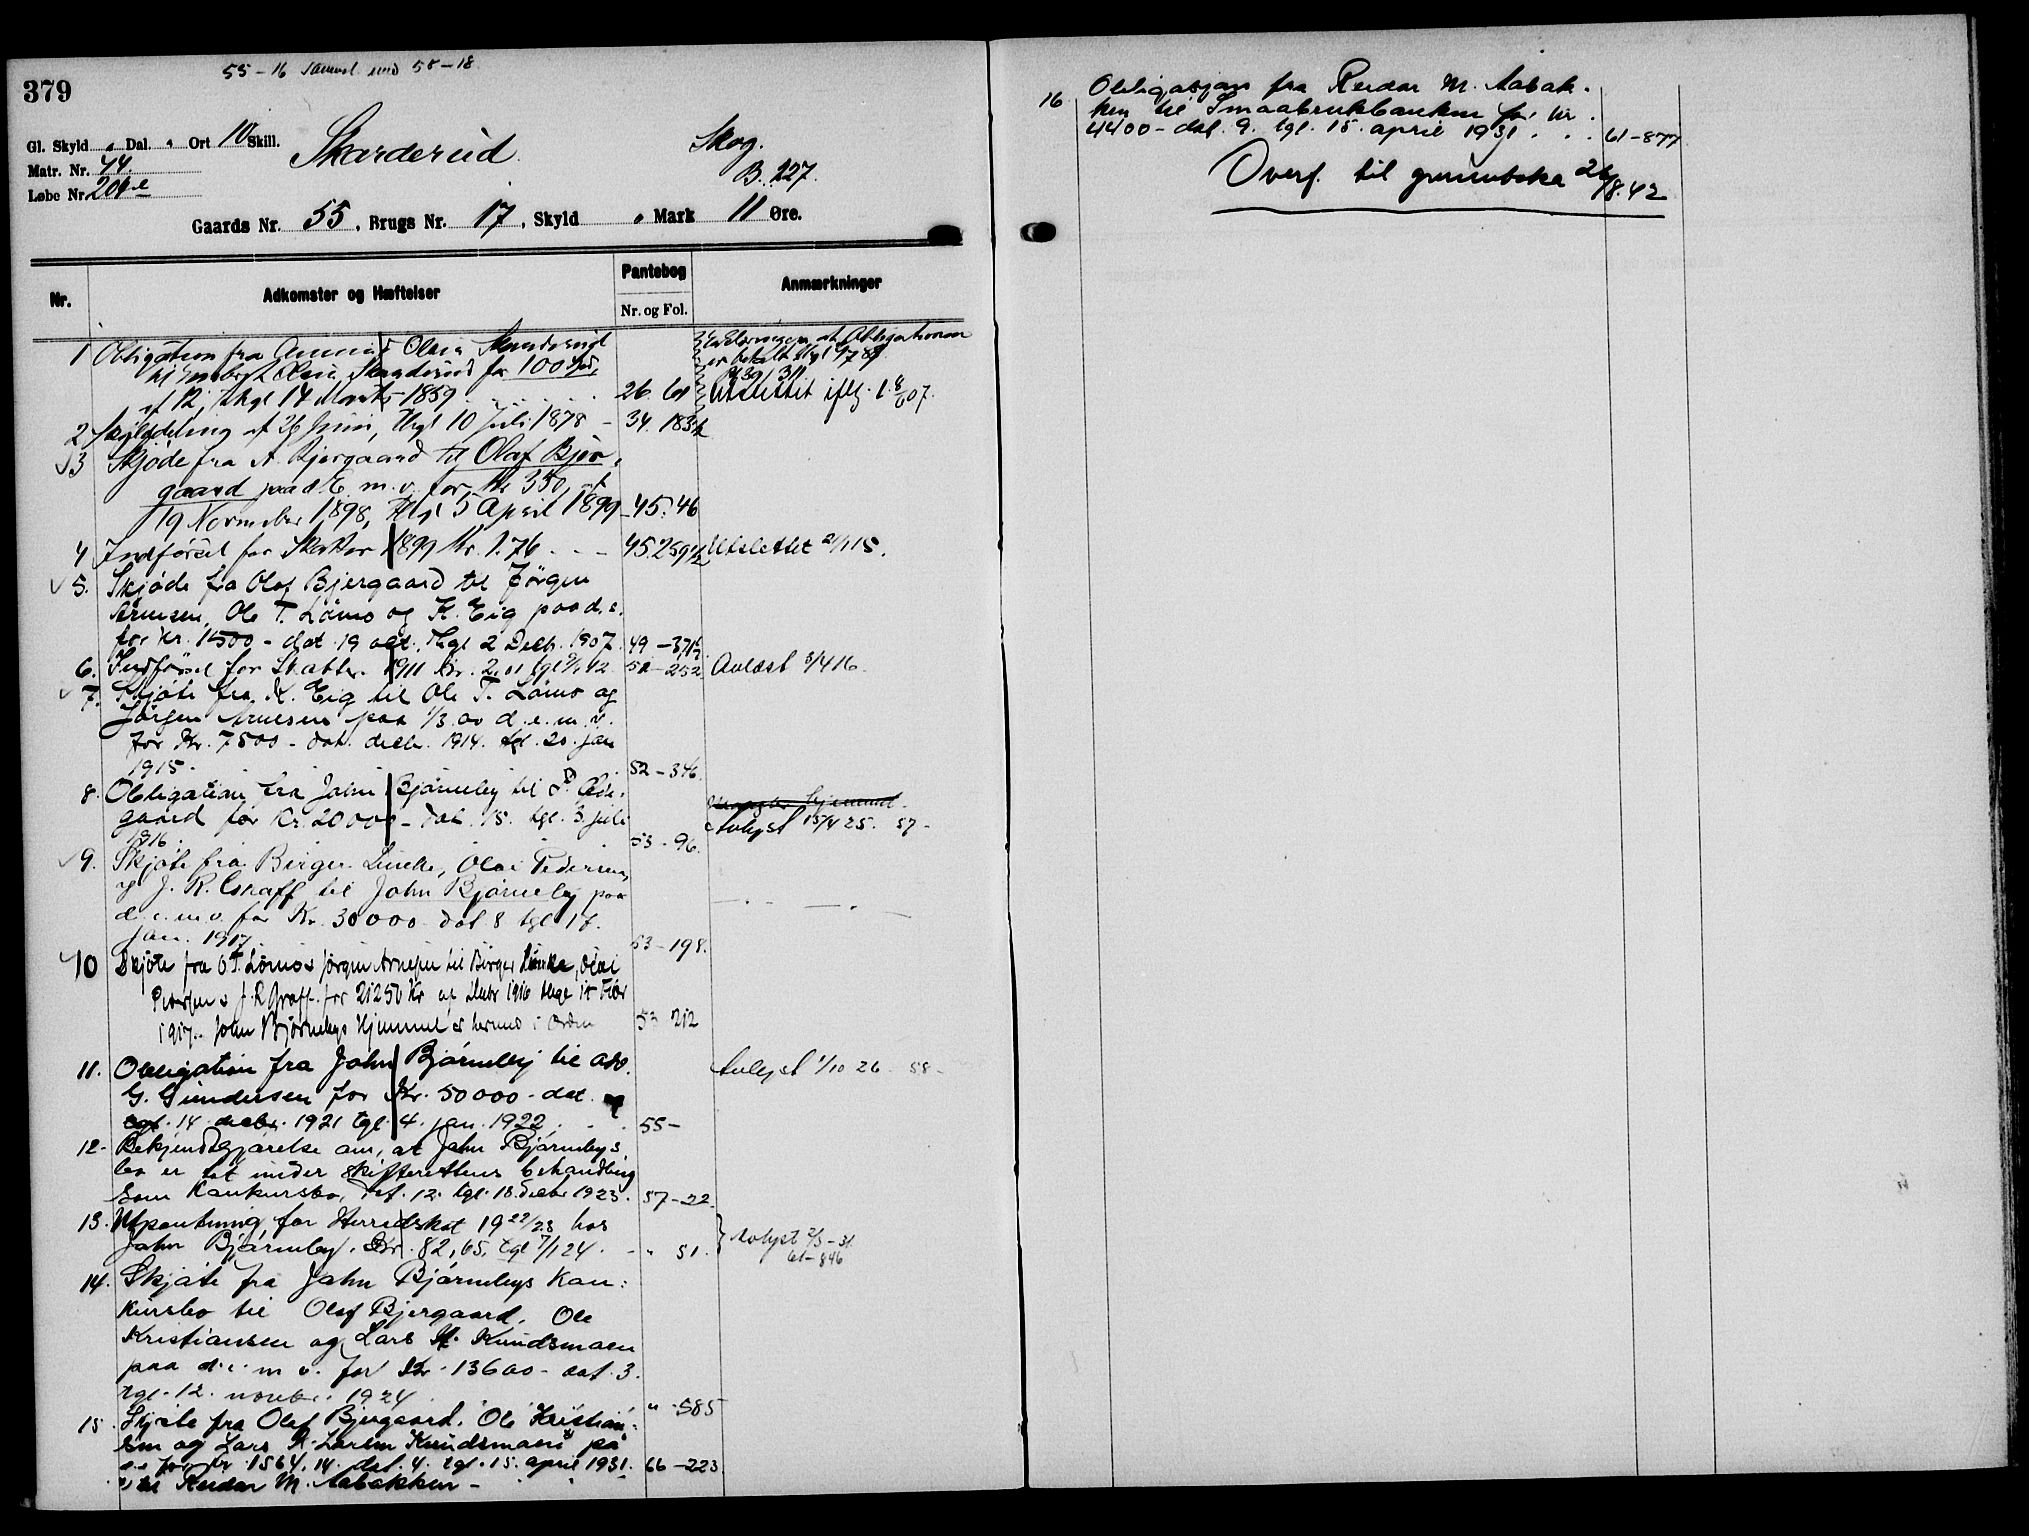 379
55-16 sammel. med 55-18
Gl. Skyld „ Dal. „ Ort 10 Skill.
Matr. Nr. 44.
Løbe Nr. 204 e
Skarderud.
Skog.
B. 227.
Gaards Nr. 55, Brugs Nr. 17, Skyld „ Mark 11 Øre.
Nr.
Adkomster og Hæftelser
Pantebog
Nr. og Fol.
Anmærkninger
1 Obligation fra Olsen Skarderud
til Skarderud for 100 Spd.
af 12, thgl 14 Marts 1859 26. 61
er betalt thgl 9/7 89
Utslettet iflg. l. 8/6 07.
2 Skylddeling af 26 Juni, Thgl 10 Juli 1878 - 34. 183
3 Skjøde fra A. Bjergaard til Olaf Bjer-
gaard paa d. E. m. v. for Kr 350, af
19 November 1898, Thgl 5 April 1899 - 45. 46
4 Indførsel for Skatter 1899 Kr. 1.76 - - - 45 259 1/2 Utslettet 2/1 15.
5. Skjøde fra Olaf Bjergaard til Jørgen
Arnesen, Ole T. Lømo og K. Eig paa d. e.
for kr. 1500 - dat. 19 okt. Thgl 2 Decb. 1907. 49 - 371 1/2
6. Indførsel for Skatter 1911 kr. 2,11 tgl 12 51 - 252 Avlæst 3/4 16.
7. Skjøte fra K. Eig til Ole T. Lømo og
Jørgen Arnesen paa 1/3 av d. e. m. v.
for Kr. 7500 - dat. decbr. 1914. tgl. 20. jan
1915. 52 - 346.
8. Obligation fra John Bjørneby til P. Ode-
gaard for Kr. 20000 - dat. 15. tgl. 3. juli
1916. 53 - 96.
Avlyst 15/4 25. 57 -
9. Skjøte fra Birger Lunke, Olai Pedersen
og J. R. Graff til John Bjørneby paa
d. e. m v. for Kr. 30000 - dat 8 tgl 17.
jan. 1917 53 - 198.
10 Skjøte fra O T. Lømo & Jørgen Arnesen til Birger Lunke, Olai
Pedersen & J. R Graff for 21250 Kr af Decbr 1916 thgl 15 Febr
1917. John Bjørnebys Hjemmel er hermed i Orden 53 212
11. Obligation fra John Bjørneby til adv.
G. Gundersen for Kr. 50000 - dat.
tgl. 14. decbr. 1921 tgl. 4. jan. 1922. 55 -
Avlyst 1/10 26. 58 -
12 - Bekjendtgjørelse om, at John Bjørnebys
bo er tat under skifterettens behandling
som konkursbo, dat. 12. tgl. 18. decbr 1923. 57 - 22.
13. Utpantning for Herredskat 19 22/23 hos
John Bjørneby. Kr. 82,65. tgl 7/1 24. - „ 51.
Avlyst 2/5 - 31.
61 - 846
14. Skjøte fra John Bjørnebys Kon-
kursbo til Olaf Bjergaard, Ole
Kristiansen og Lars K. Knudsmoen
paa d. e. m v. for Kr. 13600 - dat. 3.
tgl. 12. novbr. 1924 „ - 585
15. Skjøte fra Olaf Bjergaard. Ole Kristian-
sen og Lars K. Larsen Knudsmoen på
d. e for kr. 1564.14. dat. 4. tgl. 15. april 1931. 66 - 223
til Reidar M. Aabakken -
16 Obligasjon fra Reidar M. Aabak-
ken til Smaabrukbanken for kr.
4400 - dat. 9. tgl. 15. april 1931. . . 61 - 877
Overf. til grunnboka 26/8.42